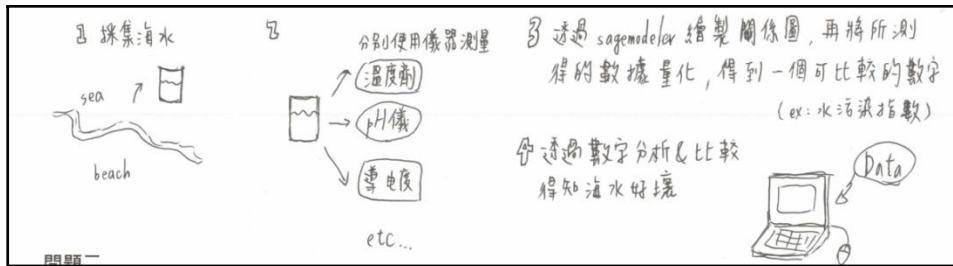 1 採集海水
sea
beach
2
分別使用儀器測量
溫度劑
pH儀
導電度
etc...
3 透過 sagemodeler 繪製關係圖,再將所測
得的數據量化,得到一個可比較的數字
(ex: 水污染指數)
4 透過數字分析&比較
得知海水好壞
Data
問題二